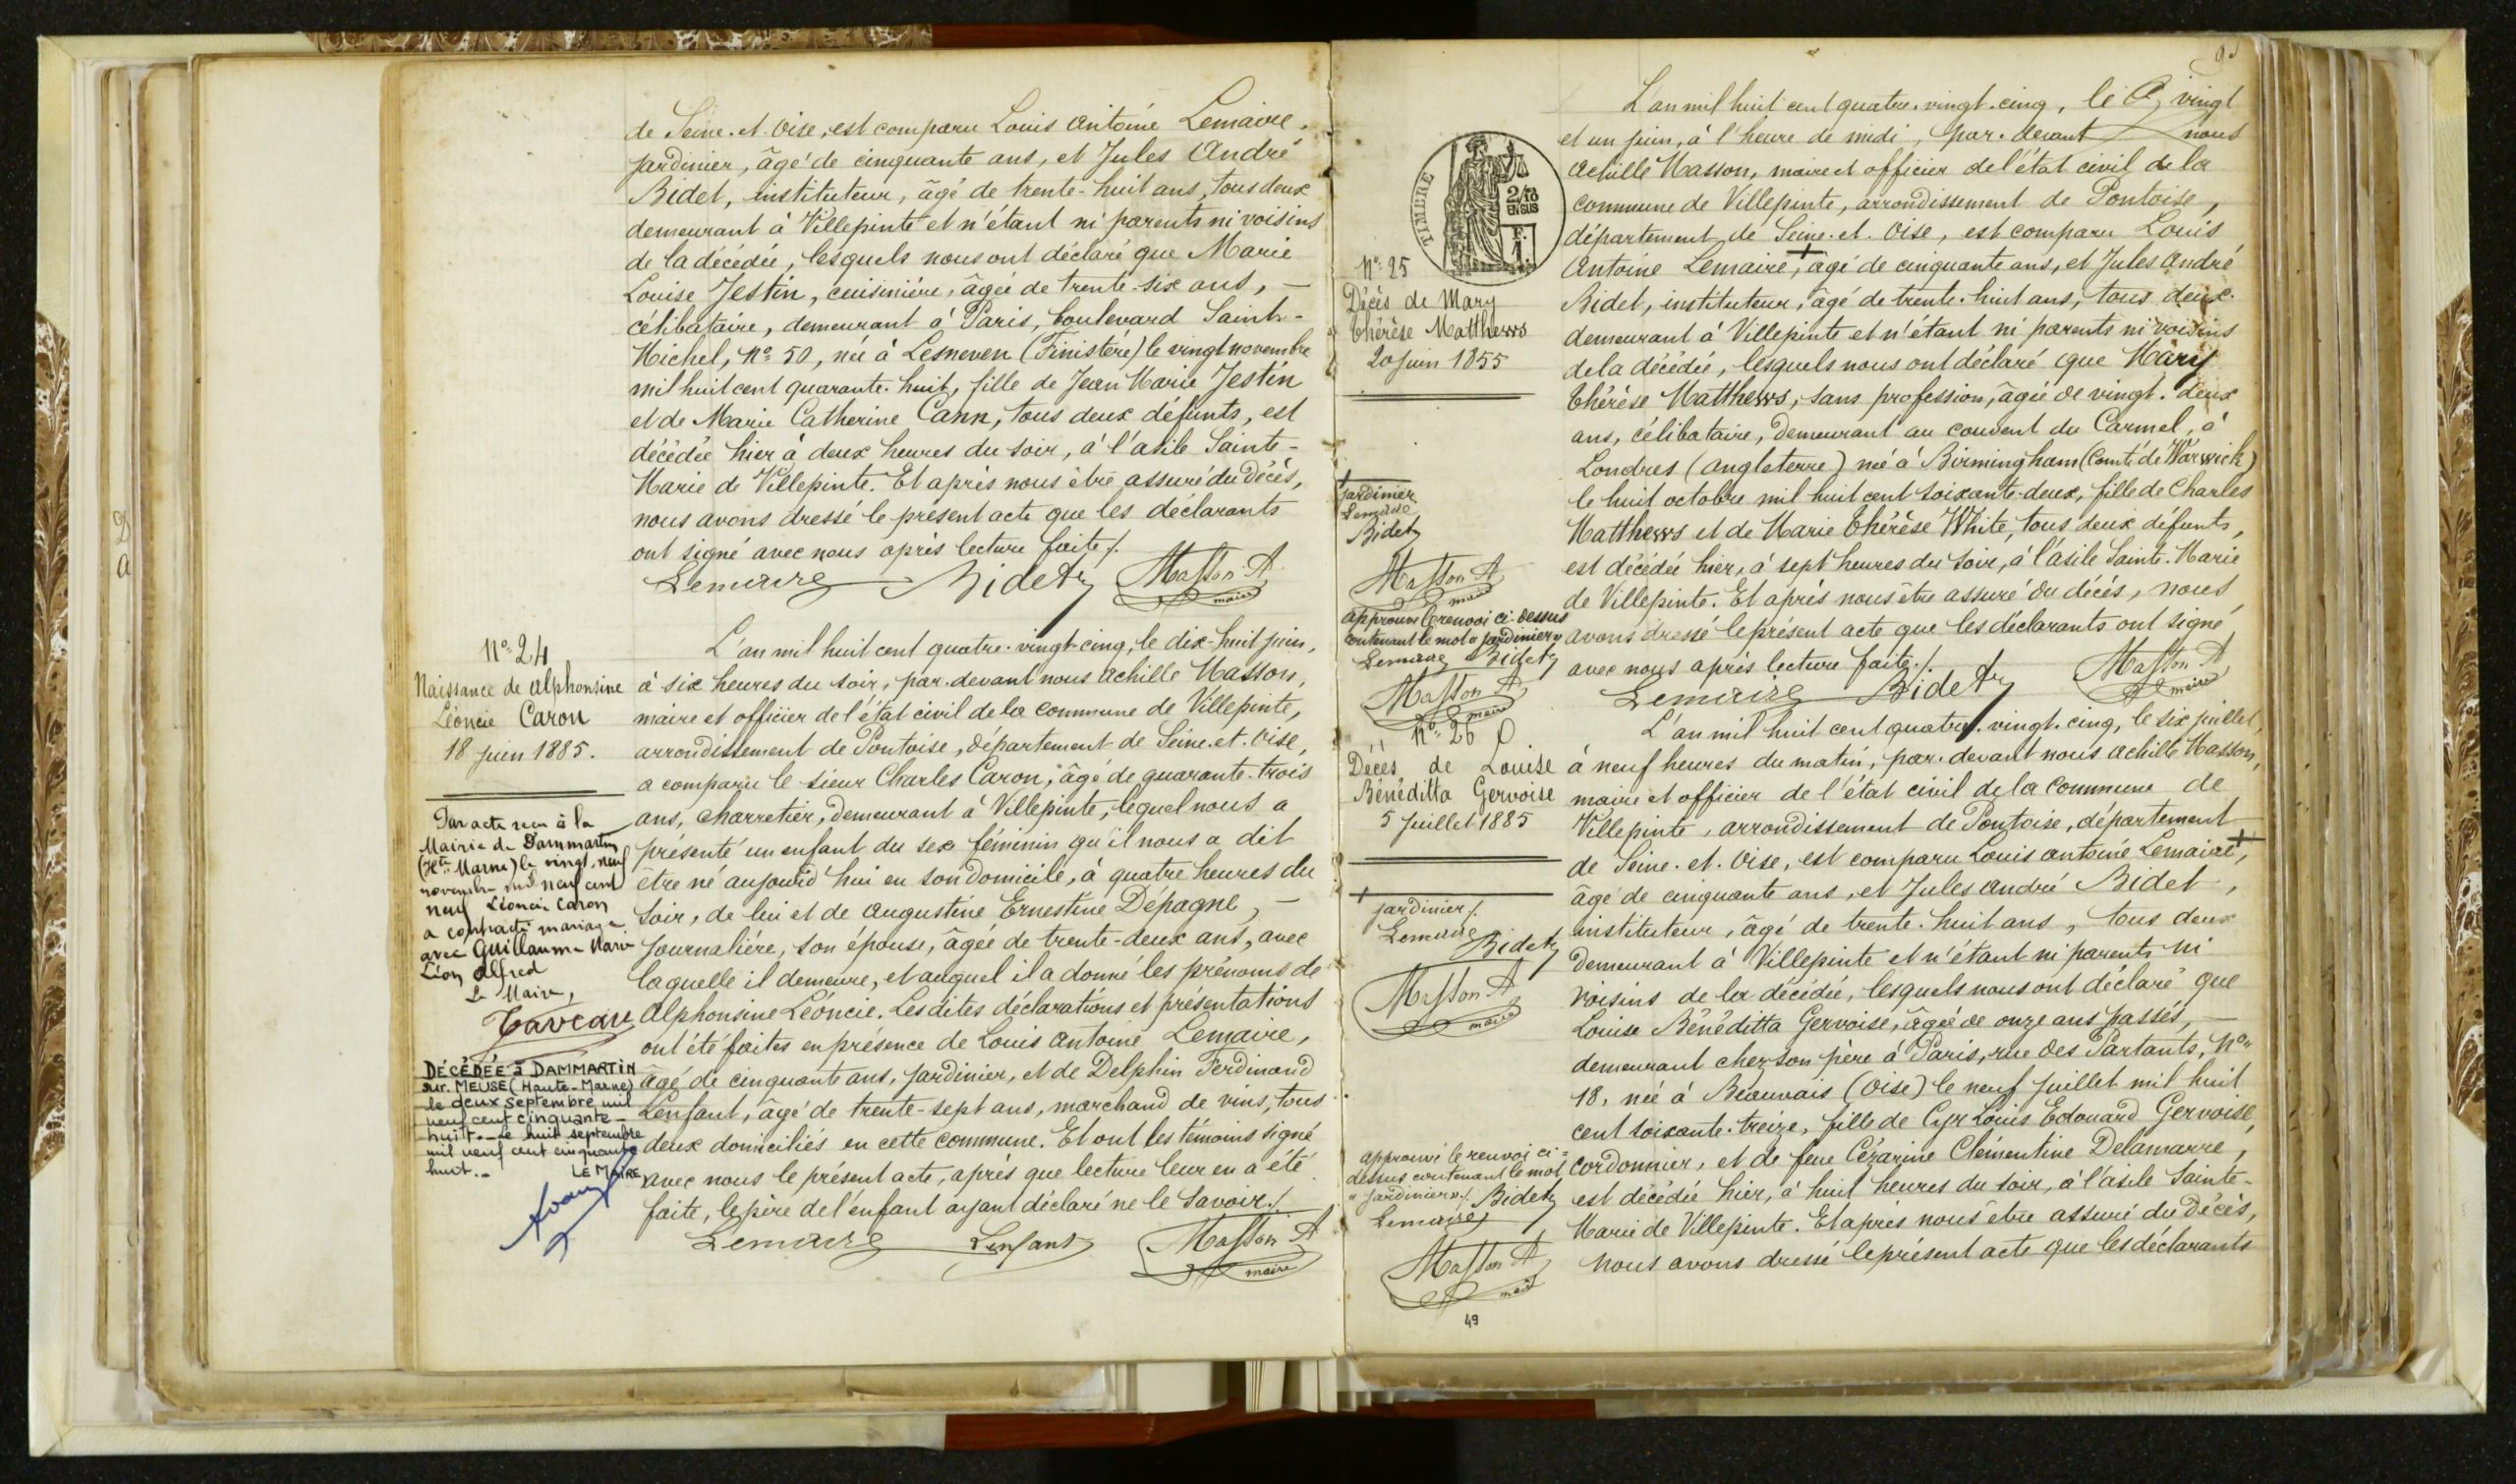 de Seine-et-Oise, est comparu Louis Antoine Lemaire,
jardinier, âgé de cinquante ans, et Jules André
Bidet, instituteur, âgé de trente-huit ans, tous deux
demeurant à Villepinte et n'étant ni parents ni voisins
de la décédée, lesquels nous ont déclaré que Marie
Louise Jestin, cuisinière, âgée de trente-six ans, —
célibataire, demeurant à Paris, boulevard Saint-
Michel, N° 50, née à Lesneven (Finistère) le vingt novembre
mil huit cent quarante-huit, fille de Jean Marie Jestin
et de Marie Catherine Cann, tous deux défunts, est
décédée hier à deux heures du soir, à l'asile Sainte-
Marie de Villepinte. Et après nous être assuré du décès,
nous avons dressé le présent acte que les déclarants
ont signé avec nous après lecture faite./.
Lemaire Bidet Masson A
maire
N° 24
Naissance de Alphonsine
Léoncie Caron
18 juin 1885.
Par acte reçu à la
Mairie de Dammartin
(Hte Marne) le vingt-neuf
novembre mil neuf cent
neuf Léoncie Caron
a contracté mariage
avec Guillaume Marie
Léon Alfred
Le Maire,
Taveau
DÉCÉDÉE à DAMMARTIN
sur MEUSE (Haute-Marne)
le deux septembre mil
neuf cent cinquante-
huit._ Le huit septembre
mil neuf cent cinquante
huit._
LE MAIRE
L'an mil huit cent quatre-vingt-cinq, le dix-huit juin,
à six heures du soir, par-devant nous Achille Masson,
maire et officier de l'état civil de la commune de Villepinte,
arrondissement de Pontoise, département de Seine-et-Oise,
a comparu le sieur Charles Caron, âgé de quarante-trois
ans, charretier, demeurant à Villepinte, lequel nous a
présenté un enfant du sexe féminin qu'il nous a dit
être né aujourd'hui en son domicile, à quatre heures du
soir, de lui et de Augustine Ernestine Dépagne, —
journalière, son épouse, âgée de trente-deux ans, avec
laquelle il demeure, et auquel il a donné les prénoms de
Alphonsine Léoncie. Les dites déclarations et présentations
ont été faites en présence de Louis Antoine Lemaire,
âgé de cinquante ans, jardinier, et de Delphin Ferdinand
Lenfant, âgé de trente-sept ans, marchand de vins, tous
deux domiciliés en cette commune. Et ont les témoins signé
avec nous le présent acte, après que lecture leur en a été
faite, le père de l'enfant ayant déclaré ne le savoir./.
Lemaire Lenfant Masson A
maire
TIMBRE
2/10
EN SUS
F.
1.
N° 25
Décès de Mary
Thérèse Matthews
20 Juin 1855
jardinier
Lemaire
Bidet
Masson A
maire
approuvé le renvoi ci-dessus
contenant le mot « jardinier »
Lemaire Bidet
Masson A
maire
L'an mil huit cent quatre-vingt-cinq, le vingt
et un juin, à l'heure de midi, par-devant nous
Achille Masson, maire et officier de l'état civil de la
commune de Villepinte, arrondissement de Pontoise,
département de Seine-et-Oise, est comparu Louis
Antoine Lemaire, + âgé de cinquante ans, et Jules André
Bidet, instituteur, âgé de trente-huit ans, tous deux
demeurant à Villepinte et n'étant ni parents ni voisins
de la décédée, lesquels nous ont déclaré que Mary
Thérèse Matthews, sans profession, âgée de vingt-deux
ans, célibataire, demeurant au couvent du Carmel, à
Londres (Angleterre) née à Birmingham (Comté de Warwick)
le huit octobre mil huit cent soixante-deux, fille de Charles
Matthews et de Marie Thérèse White, tous deux défunts,
est décédée hier, à sept heures du soir, à l'asile Sainte-Marie
de Villepinte. Et après nous être assuré du décès, nous
avons dressé le présent acte que les déclarants ont signé
avec nous après lecture faite./.
Lemaire Bidet Masson A
maire
N° 26
Décès de Louise
Bénéditta Gervoise
5 Juillet 1885
jardinier/.
Lemaire
Bidet
Masson A
maire
approuvé le renvoi ci-
dessus contenant le mot
« jardinier »/. Bidet
Lemaire
Masson A
maire
L'an mil huit cent quatre-vingt-cinq, le six juillet,
à neuf heures du matin, par-devant nous Achille Masson,
maire et officier de l'état civil de la commune de
Villepinte, arrondissement de Pontoise, département
de Seine-et-Oise, est comparu Louis Antoine Lemaire, +
âgé de cinquante ans, et Jules André Bidet,
instituteur, âgé de trente-huit ans, tous deux
demeurant à Villepinte et n'étant ni parents ni
voisins de la décédée, lesquels nous ont déclaré que
Louise Bénéditta Gervoise, âgée de onze ans passés, —
demeurant chez son père à Paris, rue des Partants, N°
18, née à Beauvais (Oise) le neuf juillet mil huit
cent soixante-treize, fille de Cyr Louis Edouard Gervoise,
cordonnier, et de feue Cézarine Clémentine Delamarre,
est décédée hier, à huit heures du soir, à l'asile Sainte-
Marie de Villepinte. Et après nous être assuré du décès,
nous avons dressé le présent acte que les déclarants
49